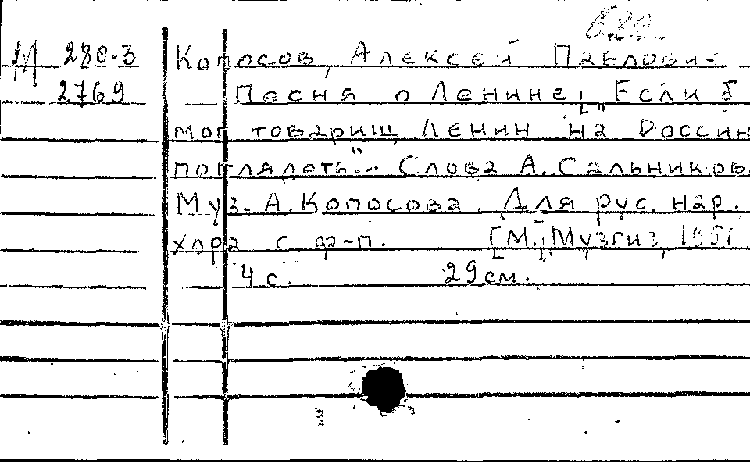 М 280-3 Копосов, Алексей Павлович
2769 Песня о Ленине: „Если б
мог товарищ Ленин на Россию
поглядеть." Слова А. Сальникова.
Муз. А. Копосова. Для рус. нар.
хора с ф-п. [М.] Музгиз, 1951
4 с. 29 см.